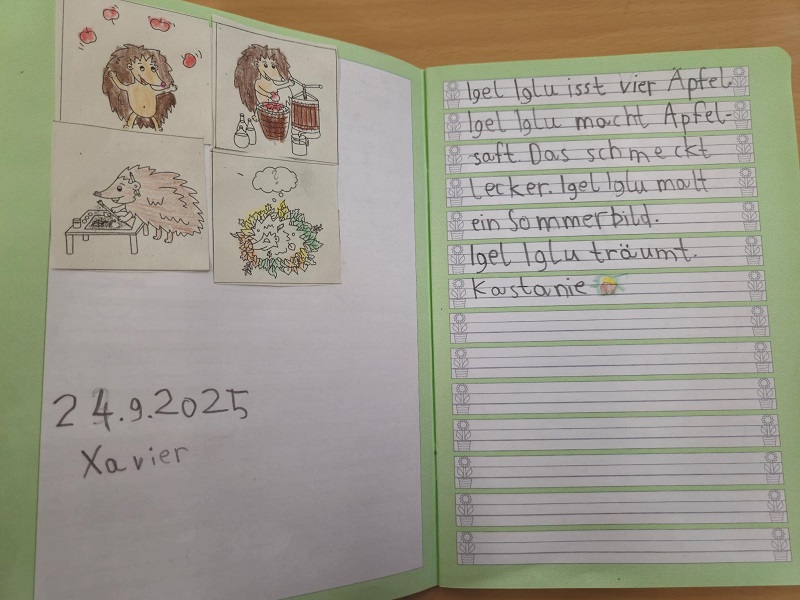 24.9.2025
Xavier
Igel Iglu isst vier Äpfel.
Igel Iglu macht Apfel-
saft. Das schmeckt
lecker. Igel Iglu malt
ein Sommerbild.
Igel Iglu träumt.
Kastanie